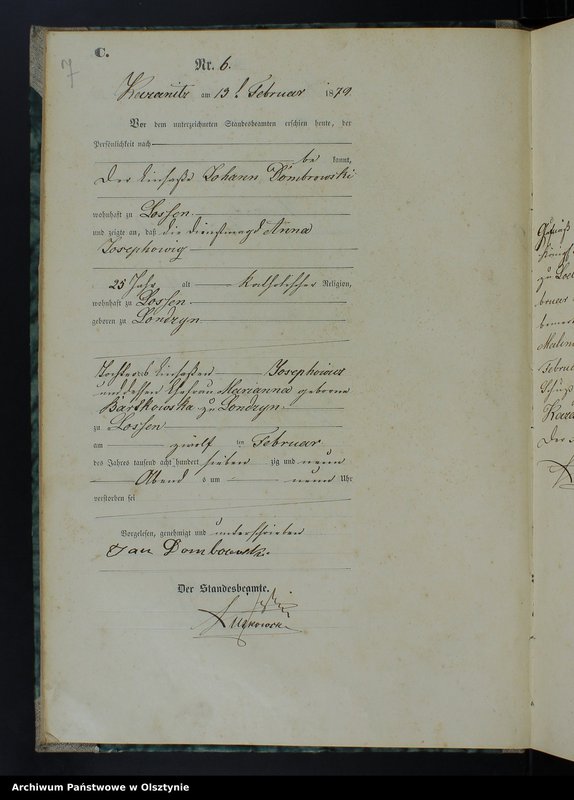 7
C.
Nr. 6.
Kazanitz am 13 t Februar 1879
Vor dem unterzeichneten Standesbeamten erschien heute, der
Persönlichkeit nach
be kannt,
Der Einsaße Johann Dombrowski
wohnhaft zu Lossen
und zeigte an, daß die Dienstmagd Anna
Josephowig
25 Jahr alt katholischer Religion,
wohnhaft zu Lossen
geboren zu Londzyn
Tochter des Einsaßen Josephowicz
und dessen Ehefrau Marianna geborne
Bartkowska zu Londzyn
zu Lossen
am zwölf ten Februar
des Jahres tausend acht hundert sieben zig und neun
Abend s um neun Uhr
verstorben sei
Vorgelesen, genehmigt und unterschrieben
Jan Dombrowski.
Der Standesbeamte.
Archiwum Państwowe w Olsztynie